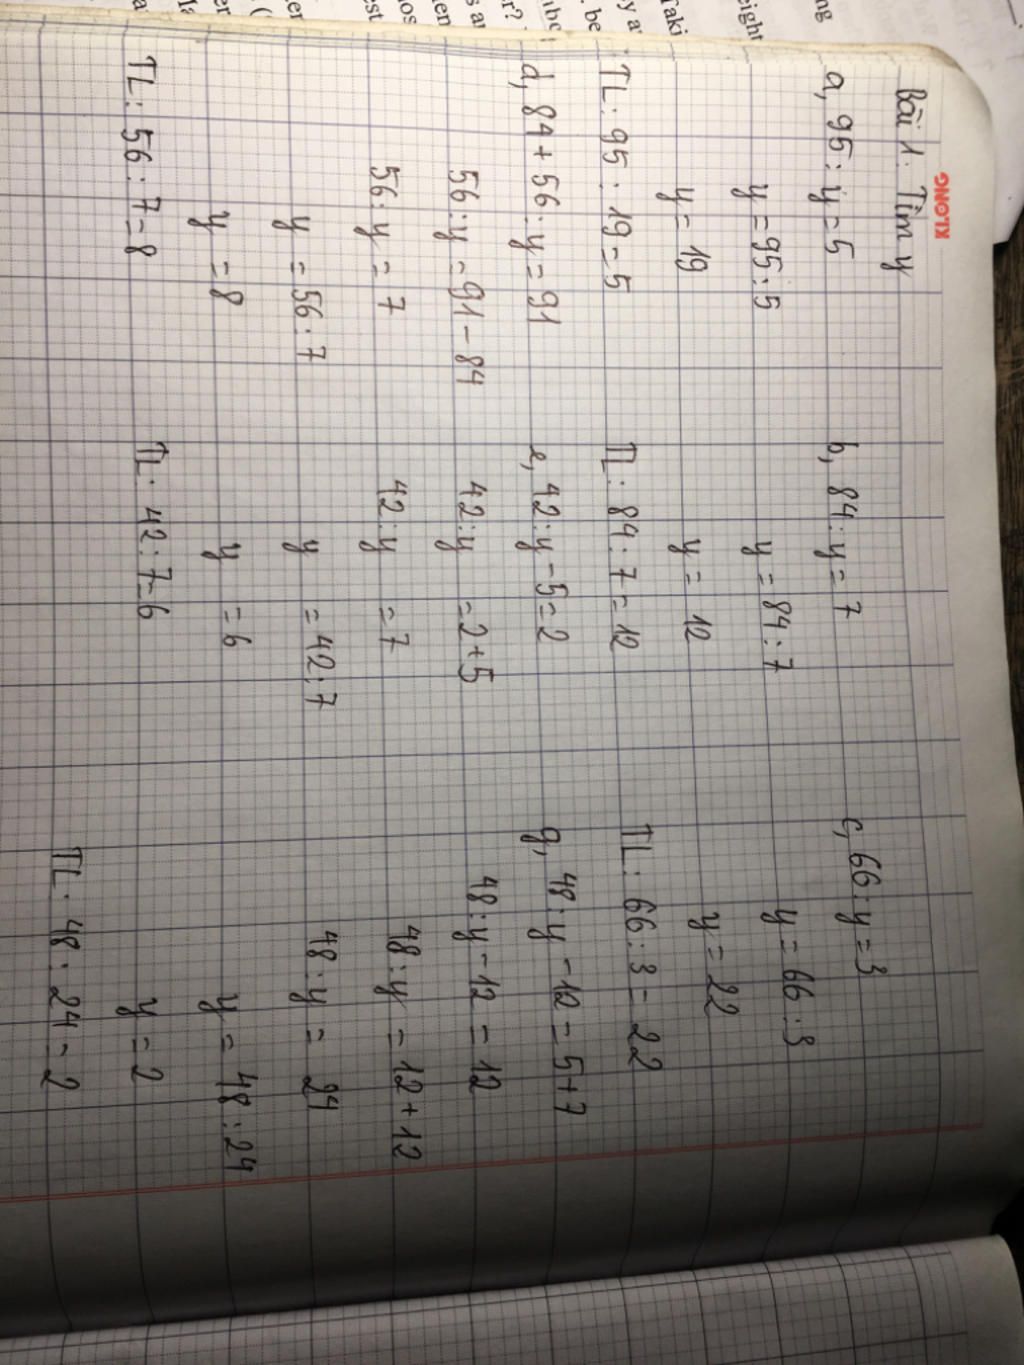 KLONG
Bài 1. Tìm y
a, 95 : y = 5
y = 95 : 5
y = 19
TL : 95 : 19 = 5
b, 84 : y = 7
y = 84 : 7
y = 12
TL : 84 : 7 = 12
c, 66 : y = 3
y = 66 : 3
y = 22
TL : 66 : 3 = 22
d, 84 + 56 : y = 91
56 : y = 91 - 84
56 : y = 7
y = 56 : 7
y = 8
TL : 56 : 7 = 8
e, 42 : y - 5 = 2
42 : y = 2 + 5
42 : y = 7
y = 42 : 7
y = 6
TL : 42 : 7 = 6
g, 48 : y - 12 = 5 + 7
48 : y - 12 = 12
48 : y = 12 + 12
48 : y = 24
y = 48 : 24
y = 2
TL : 48 : 24 = 2